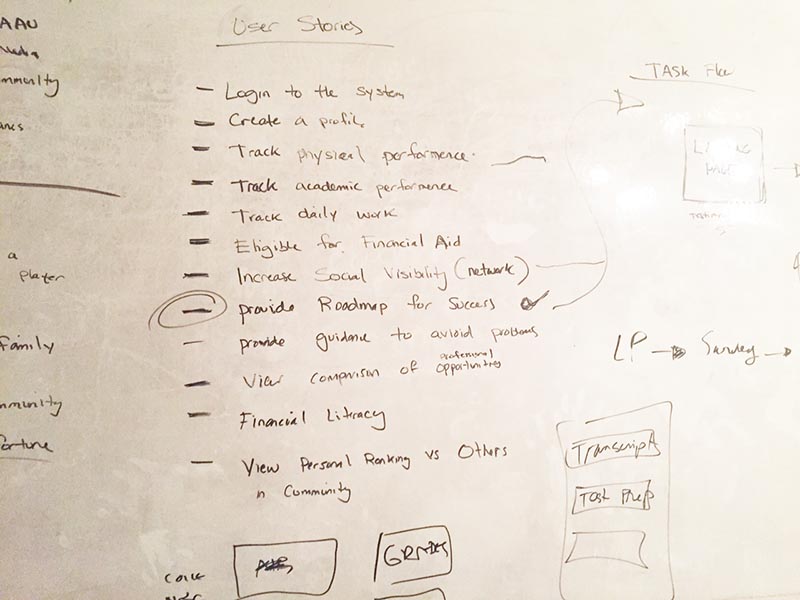 AAU
mmunity
a
player
Family
mmunity
fortune
User Stories
Login to the system
Create a profile
Track physical performence
Track academic performence
Track daily work
Eligible for Financial Aid
Increase Social Visibility (network)
provide Roadmap for Success
provide guidance to avioid problems
View comparison of professional opportunities
Financial Literacy
View Personal Ranking vs Others
n Community
GRADES
TASK
LP
Transcript